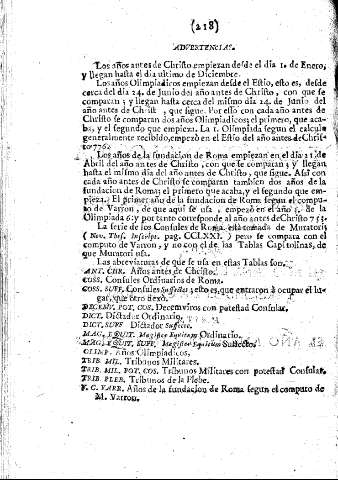 (218)
ADVERTENCIAS.
Los años antes de Christo empiezan desde el dia 1. de Enero,
y llegan hasta el dia ultimo de Diciembre.
Los años Olimpiadicos empiezan desde el Estio, esto es, desde
cerca del dia 24. de Junio del año antes de Christo, con que se
comparan; y llegan hasta cerca del mismo dia 24. de Junio del
año antes de Christ., que sigue. Por esso con cada año antes de
Christo se comparan dos años Olimpiadicos; el primero, que aca-
ba, y el segundo que empieza. La 1. Olimpiada segun el calculo
generalmente recibido, empezó en el Estio del año antes de Chris-
to 776.
Los años de la fundacion de Roma empiezan en el dia 21 de
Abril del año antes de Christo, con que se comparan; y llegan
hasta el mismo dia del año antes de Christo, que sigue. Assi con
cada año antes de Christo se comparan tambien dos años de la
fundacion de Roma; el primero que acaba, y el segundo que em-
pieza. El primer año de la fundacion de Roma segun el compu-
to de Varron, de que aqui se usa, empezó en el año 3. de la
Olimpiada 6: y por tanto corresponde al año antes de Christo 753.
La serie de los Consules de Roma está tomada de Muratori
(Nov. Thes. Inscrip. pag. CCLXXI.) pero se compara con el
computo de Varron, y no con el de las Tablas Capitolinas, de
que Muratori usa.
Las abreviaturas de que se usa en estas Tablas son.
ANT. CHR. Años antes de Christo.
COSS. Consules Ordinarios de Roma.
COSS. SUFF. Consules Suffectos; esto es, que entraron à ocupar el lu-
gar, que otro dexó.
DECEMV. POT. COS. Decemviros con potestad Consular.
DICT. Dictador Ordinario.
DICT. SUFF Dictador Suffecto.
MAG. EQUIT. Magister Equitum Ordinario.
MAG. EQUIT. SUFF. Magister Equitum Suffecto.
OLIMP. Años Olimpiadicos.
TRIB. MIL. Tribunos Militares.
TRIB. MIL. POT. COS. Tribunos Militares con potestad Consular.
TRIB. PLEB. Tribunos de la Plebe.
V. C. VARR. Años de la fundacion de Roma segun el computo de
M. Varron.